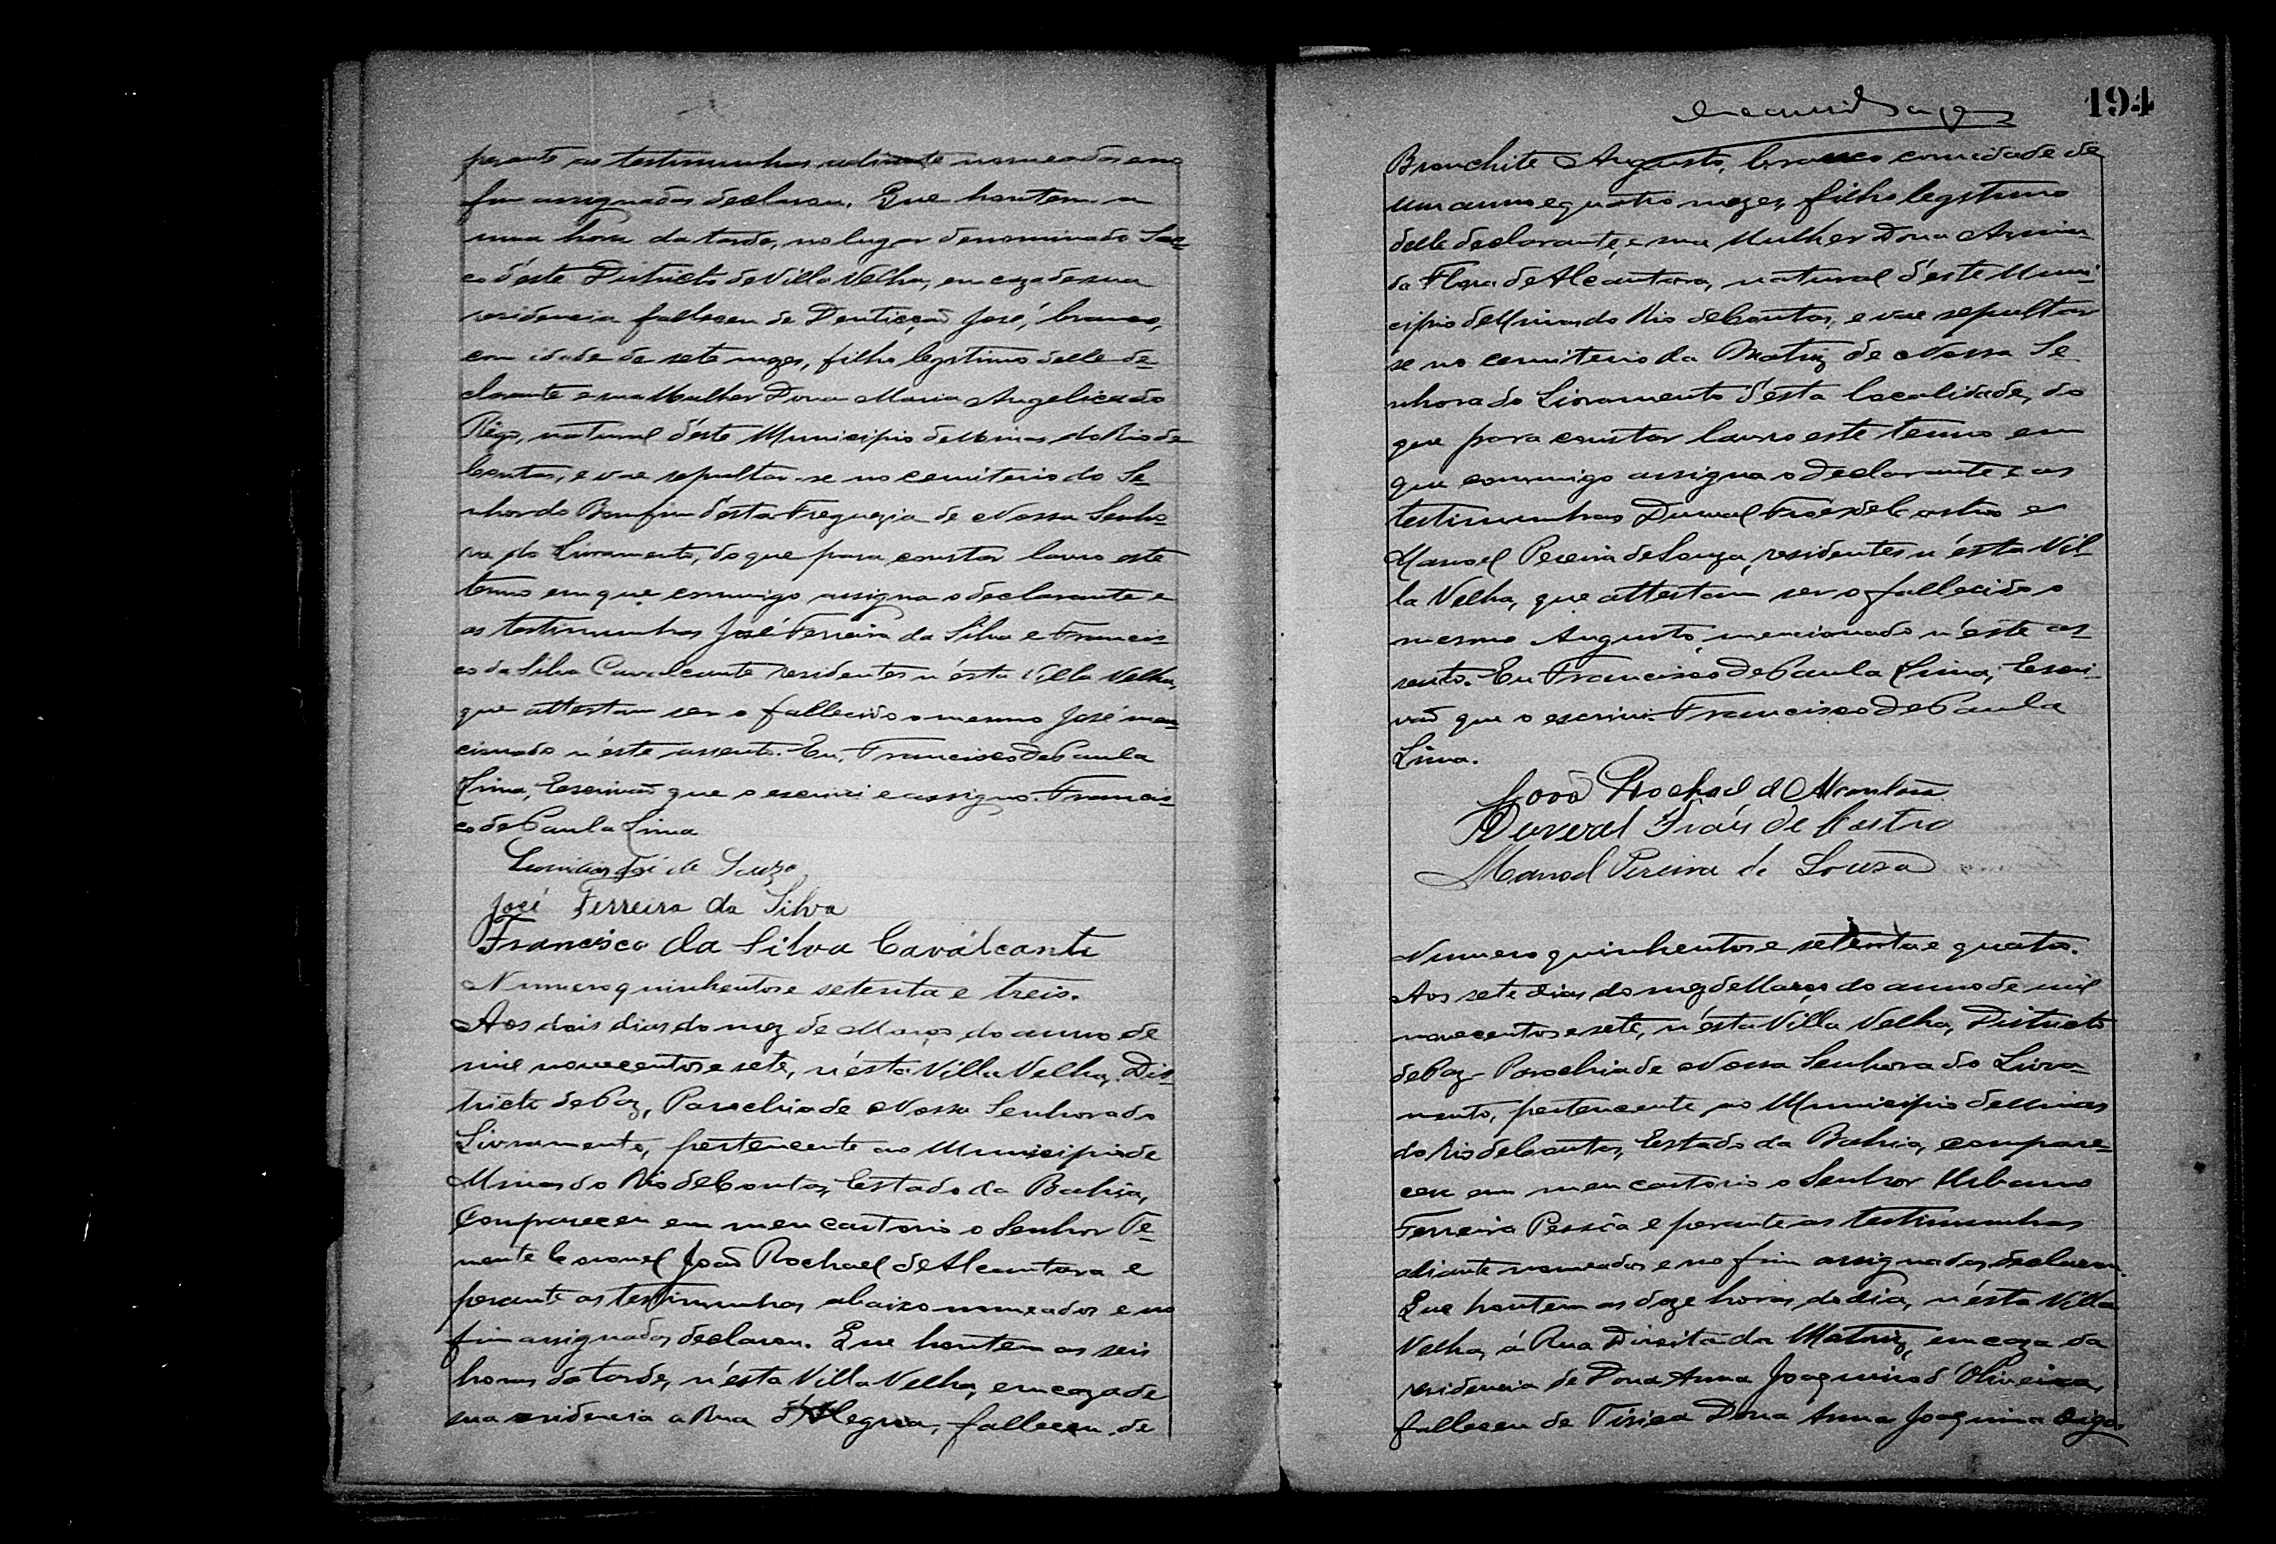 perante as testimunhas adiante nomeados e no
fim assignados declarou. Que hontem a
uma hora da tarde, no lugar denominado Sac-
co d'este Districto de Villa Velha, em caza de sua
residencia falleceu de Dentição José, branco,
com idade de sete mezes, filho legitimo delle de-
clarante e sua Mulher Dona Maria Angelica do
Rêgo, natural d'este Municipio de Minas do Rio de
Contas, e vae sepultar-se no cemiterio do Se-
nhor do Bomfim d'esta Freguezia de Nossa Senho-
ra do Livramento, do que para constar lavro este
termo em que commigo assigna o declarante e
as testimunhas José Ferreira da Silva e Francis-
co da Silva Cavalcante residentes n'esta Villa Velha,
que attestam ser o fallecido o mesmo José men-
cionado n'este assento. Eu, Francisco de Paula
Lima, Escrivão que o escrevi e assigno. Francis-
co de Paula Lima
José de Souza
José Ferreira da Silva
Francisco da Silva Caválcante
Numero quinhentos e setenta e treis.
Aos dois dias do mez de Março do anno de
mil novecentos e sete, n'esta Villa Velha, Dis-
tricto de Paz, Parochia de Nossa Senhora do
Livramento, pertencente ao Municipio de
Minas do Rio de Contas, Estado da Bahia,
Compareceu em meu cartorio o Senhor Te-
nente Coronel João Rochael de Alcantara e
perante as testimunhas abaixo nomeados e no
fim assignados declarou. Que hontem as seis
horas da tarde, n'esta Villa Velha, em caza de
sua residencia a Rua d'Alegria, falleceu de
194
Bronchite Augusto, branco com idade de
um anno e quatro mezes, filho legitimo
delle declarante, e sua Mulher Dona Armin-
da Flora de Alcantara, natural d'este Muni-
cipio de Minas do Rio de Contas, e vae sepultar
se no cemiterio da Matriz de Nossa Se-
nhora do Livramento d'esta localidade, do
que para constar lavro este termo em
que commigo assigna o declarante e as
testimunhas Durval Fróes de Castro e
Manoel Pereira de Souza, residentes n'esta Vil-
la Velha, que attestam ser o fallecido o
mesmo Augusto, mencionado n'este as-
sento. Eu Francisco de Paula Lima, Escri-
vão que o escrevi. Francisco de Paula
Lima.
João Rochael de Alcantara
Durval Fróes de Castro
Manoel Pereira de Souza
Numero quinhentos e setenta e quatro.
Aos sete dias do mez de Março do anno de mil
novecentos e sete, n'esta Villa Velha, Districto
de Paz - Parochia de Nossa Senhora do Livra-
mento, pertencente ao Municipio de Minas
do Rio de Contas, Estado da Bahia, compare-
ceu em meu cartorio o Senhor Urbano
Ferreira Pessôa e perante as testimunhas
adiante nomeados e no fim assignados declarou.
Que hontem as doze horas do dia, n'esta Villa
Velha, á Rua Direita da Matriz, em caza da
residencia de Dona Anna Joaquina d'Oliveira,
falleceu de Tisica Dona Anna Joaquina